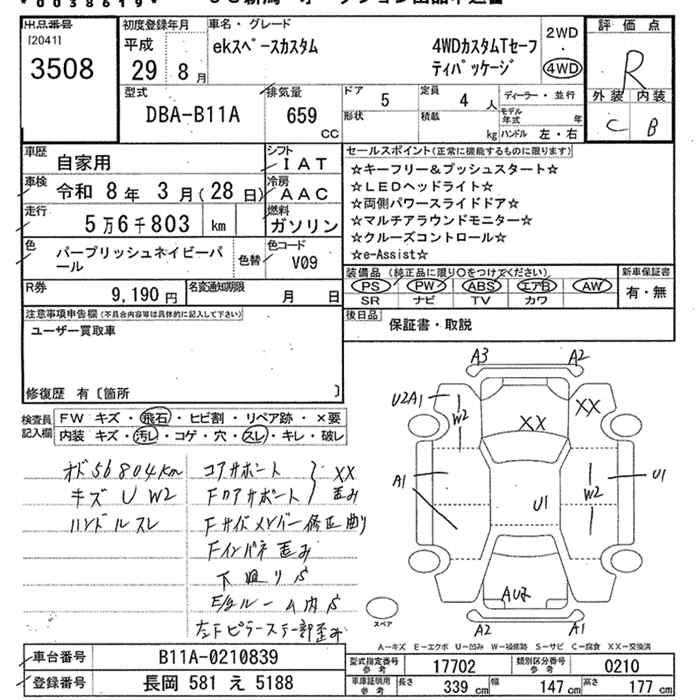 出品番号
[20411]
3508
初度登録年月
平成
29年 8月
車名・グレード
ekスペースカスタム
4WDカスタムTセーフ
ティパッケージ
2WD
・
4WD
評価点
R
外装 内装
C B
型式
DBA-B11A
排気量
659
CC
ドア 5
定員 4人
形状
積載 kg
ディーラー・並行
モデル年式 年
ハンドル 左・右
車歴
自家用
シフト
IAT
車検
令和 8年 3月(28日)
冷房
AAC
走行
5万6千803 km
燃料
ガソリン
色
パープリッシュネイビーパ
ール
色替
色コード
V09
R券
9,190円
名変通知期限
月 日
セールスポイント(正常に機能するものに限ります)
☆キーフリー&プッシュスタート☆
☆LEDヘッドライト☆
☆両側パワースライドドア☆
☆マルチアラウンドモニター☆
☆クルーズコントロール☆
☆e-Assist☆
装備品(純正品に限り○をつけてください)
PS PW ABS エアB AW
SR ナビ TV カワ
新車保証書
有・無
後日品
保証書・取説
注意事項申告欄(不具合内容等は具体的に記入して下さい)
ユーザー買取車
修復歴 有〔箇所 〕
検査員
記入欄
FW キズ・飛石・ヒビ割・リペア跡・×要
内装 キズ・汚レ・コゲ・穴・スレ・キレ・破レ
オド56804km
キズ U W2
ハンドルスレ
コアサポート
Fロアサポート
XX
歪み
Fサイドメンバー修正曲り
Fインパネ歪み
下廻りS
E/gルーム内S
左Fピラーステー部歪み
A3
A2
U2A1
W2
XX
XX
A1
U1
W2
U1
AU2
A2
A1
スペア
A-キズ E-エクボ U-凹み W-補修跡 S-サビ C-腐食 XX-交換済
車台番号
B11A-0210839
登録番号
長岡 581 え 5188
型式指定番号
参考
17702
類別区分番号
参考
0210
車庫証明用
参考
長さ 339cm
幅 147cm
高さ 177cm